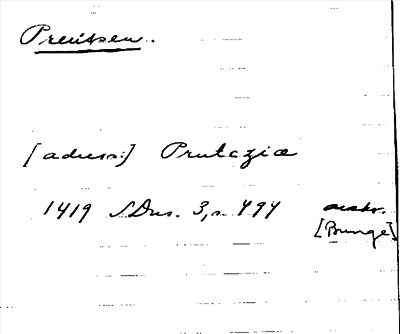 Preussen.
[adress:] Prutczia
1419 SDns. 3, s. 494 avskr.
[Bunge]